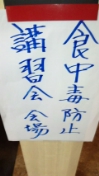 食中毒防止
講習会会場